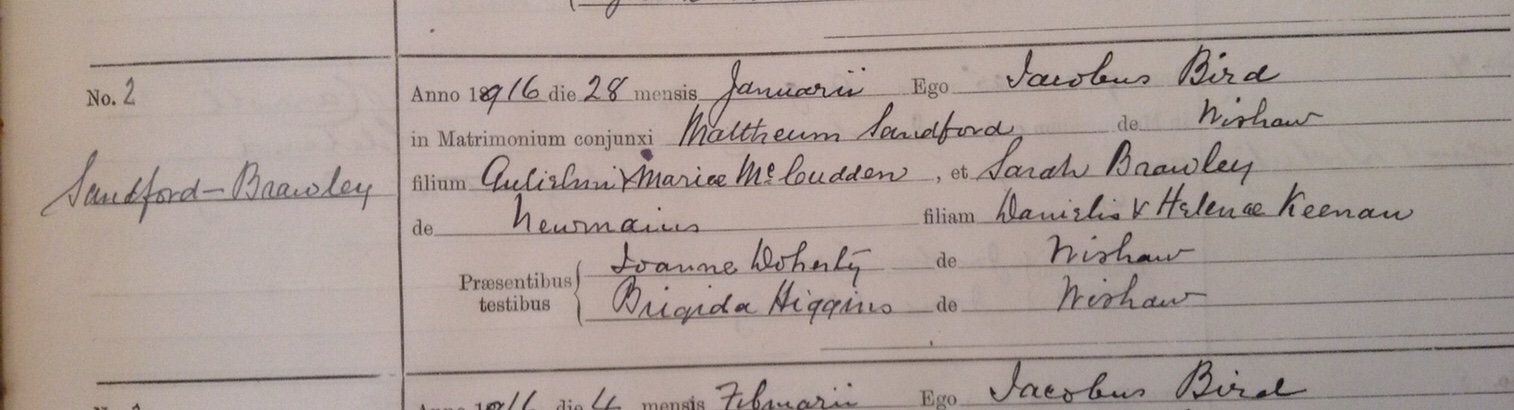 No. 2
Sandford - Brawley
Anno 1916 die 28 mensis Januarii Ego Jacobus Bird
in Matrimonium conjunxi Mattheum Sandford de Wishaw
filium Gulielmi & Mariae McCudden, et Sarah Brawley
de Newmains filiam Danielis & Helenae Keenan
Præsentibus testibus { Joanne Doherty de Wishaw
Brigida Higgins de Wishaw
Anno 1916 die 4 mensis Februarii Ego Jacobus Bird